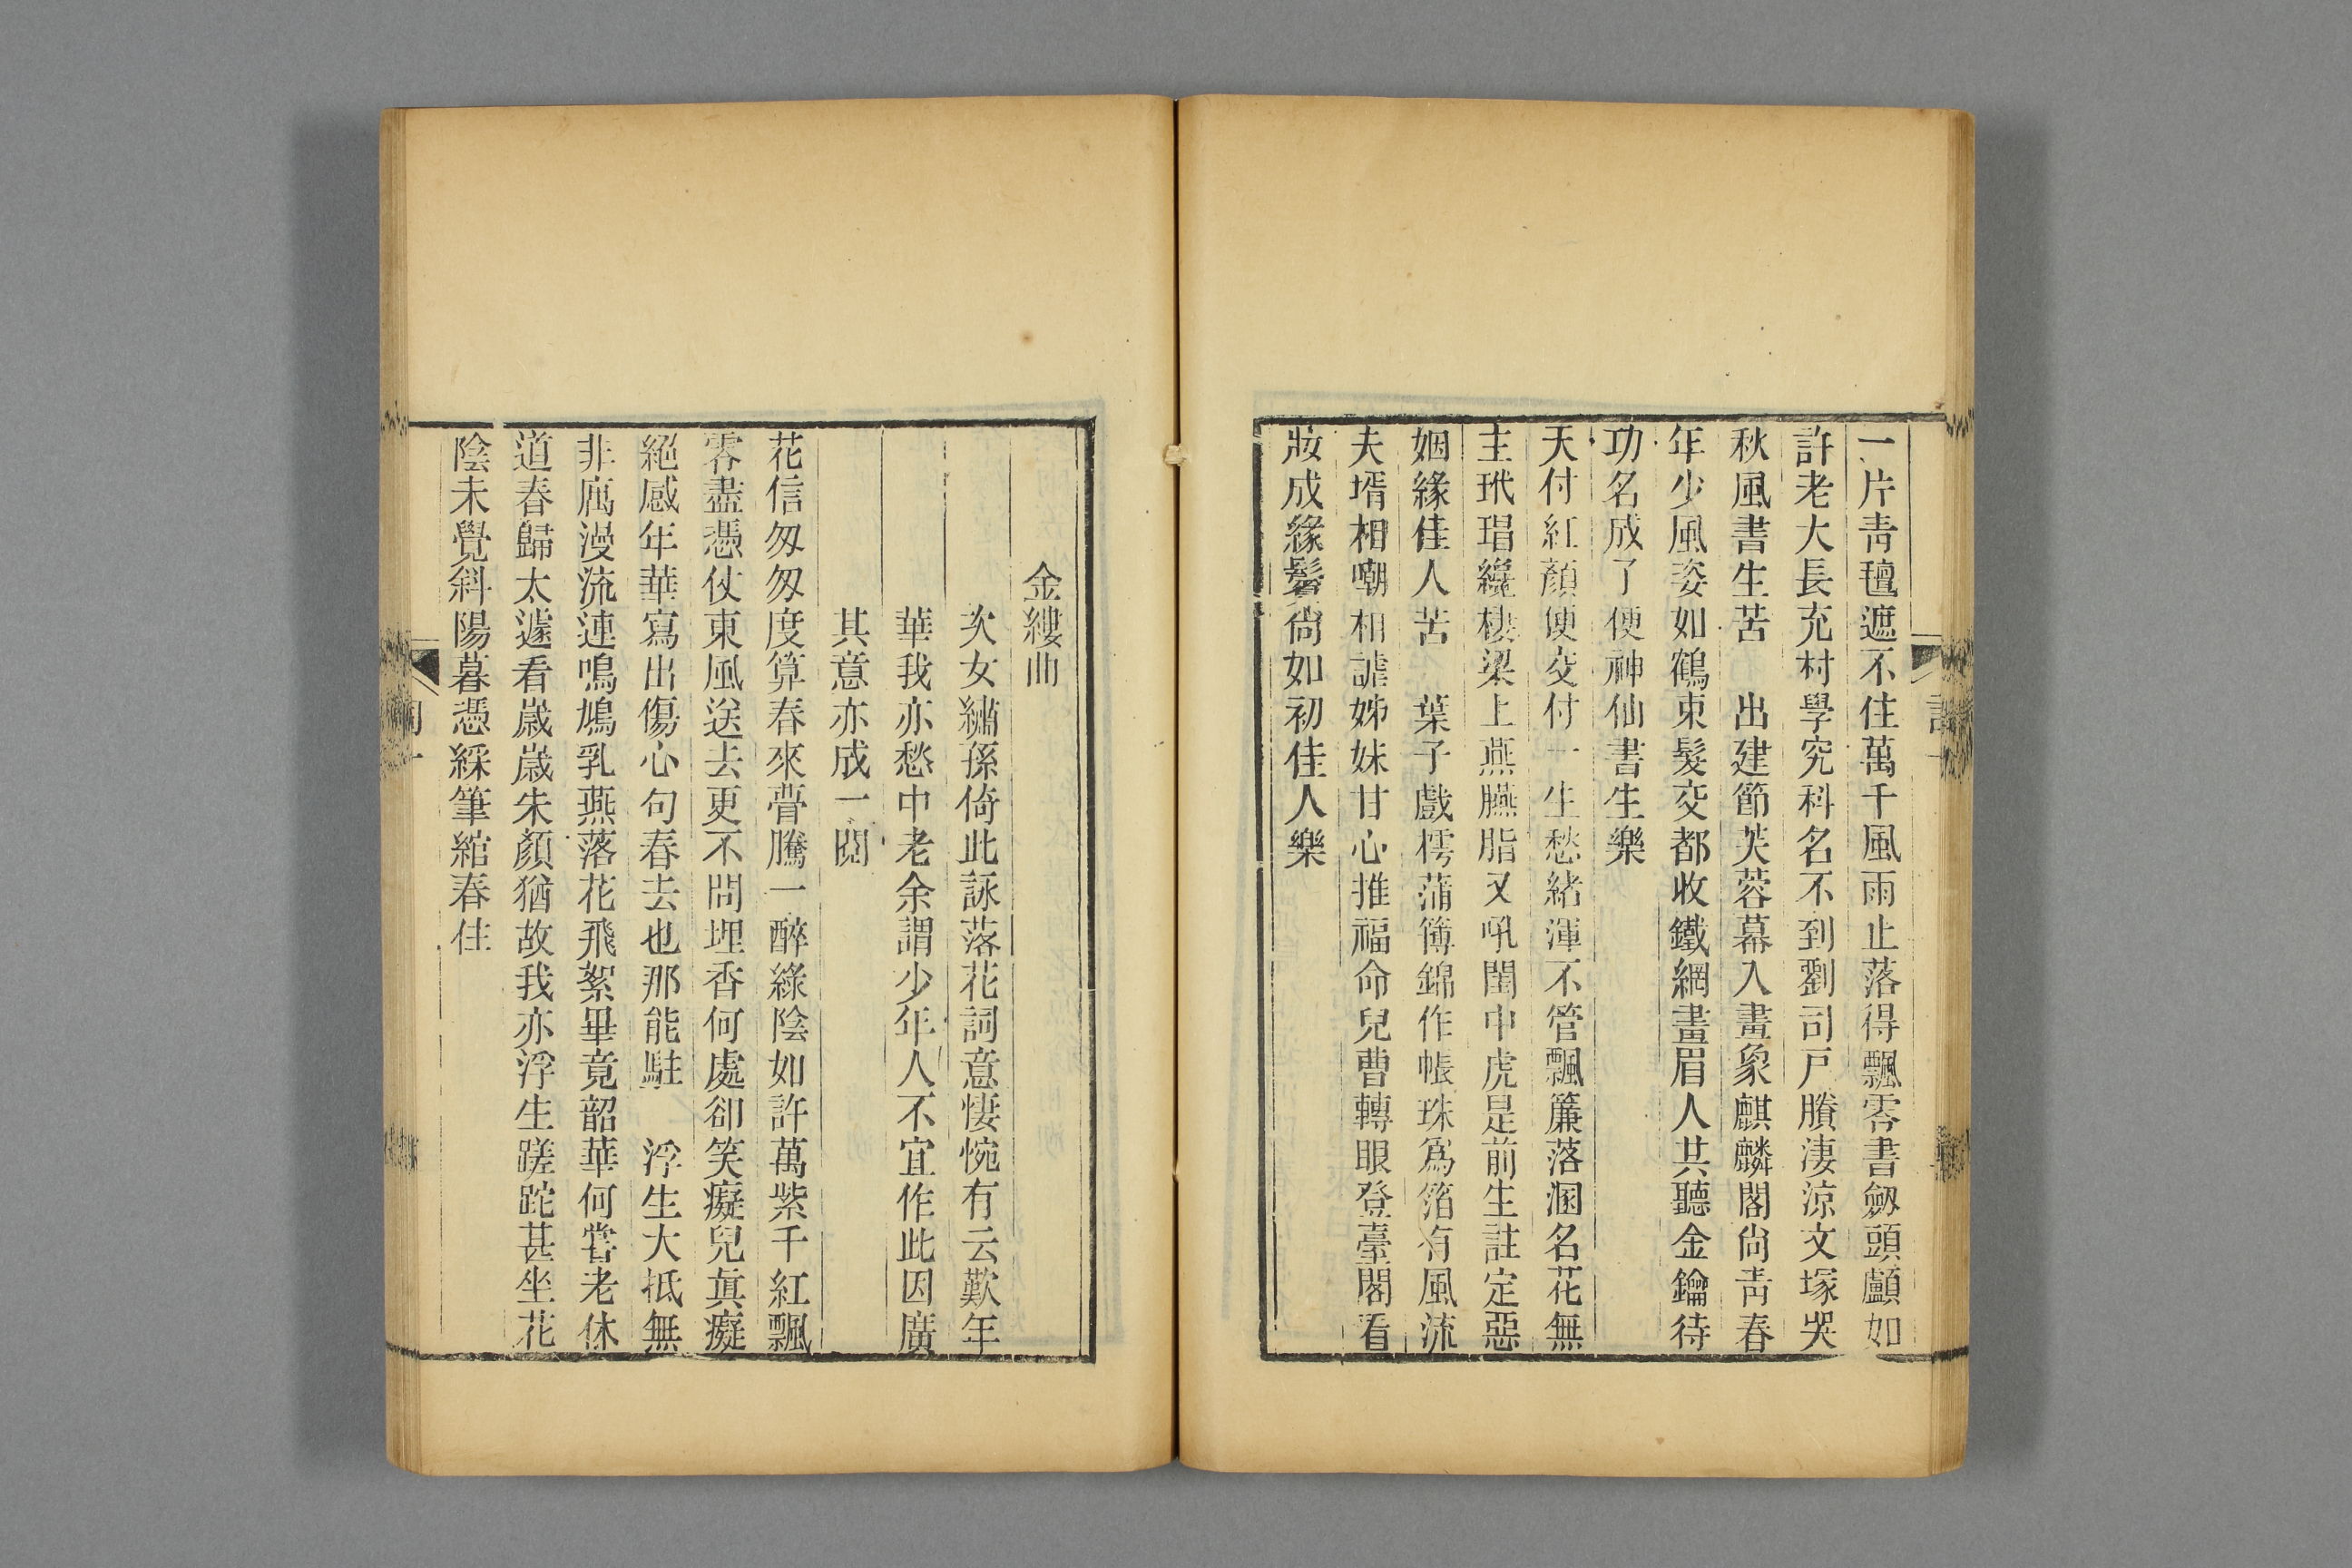 一片靑氊遮不住萬千風雨止落得飄零書劔頭顱如
許老大長充村學究科名不到劉司戶賸淒涼文塚哭
秋風書生苦　出建節芙蓉幕入畫象麒麟閣尙靑春
年少風姿如鶴束髮交都收鐵網畫眉人共聽金鑰待
功名成了便神仙書生樂
天付紅顏便交付一生愁緖渾不管飄簾落溷名花無
主玳瑁纔棲梁上燕臙脂又吼閨中虎是前生註定惡
姻緣佳人苦　葉子戲樗蒲簿錦作帳珠爲箔有風流
夫壻相嘲相謔姊妹甘心推福命兒曹轉眼登臺閣看
妝成綠鬢尙如初佳人樂
金縷曲
次女繡孫倚此詠落花詞意悽惋有云歎年
華我亦愁中老余謂少年人不宜作此因廣
其意亦成一闋
花信匆匆度算春來瞢騰一醉綠陰如許萬紫千紅飄
零盡憑仗東風送去更不問埋香何處卻笑癡兒眞癡
絕感年華寫出傷心句春去也那能駐　浮生大抵無
非寓漫流連鳴鳩乳燕落花飛絮畢竟韶華何嘗老休
道春歸太遽看歲歲朱顏猶故我亦浮生蹉跎甚坐花
陰未覺斜陽暮憑綵筆綰春住